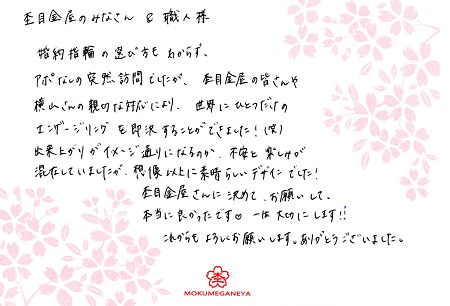 杢目金屋のみなさん & 職人様
婚約指輪の選び方もわからず、
アポなしの突然訪問でしたが、杢目金屋の皆さんや
横山さんの親切な対応により、世界にひとつだけの
エンゲージリングを即決することができました！(笑)
出来上がりがイメージ通りになるのか、不安と楽しみが
混在していましたが、想像以上に素晴らしいデザインでした！
杢目金屋さんに決めて、お願いして、
本当に良かったです♡ 一生大切にします!!
これからもよろしくお願いします。ありがとうございました。
MOKUMEGANEYA